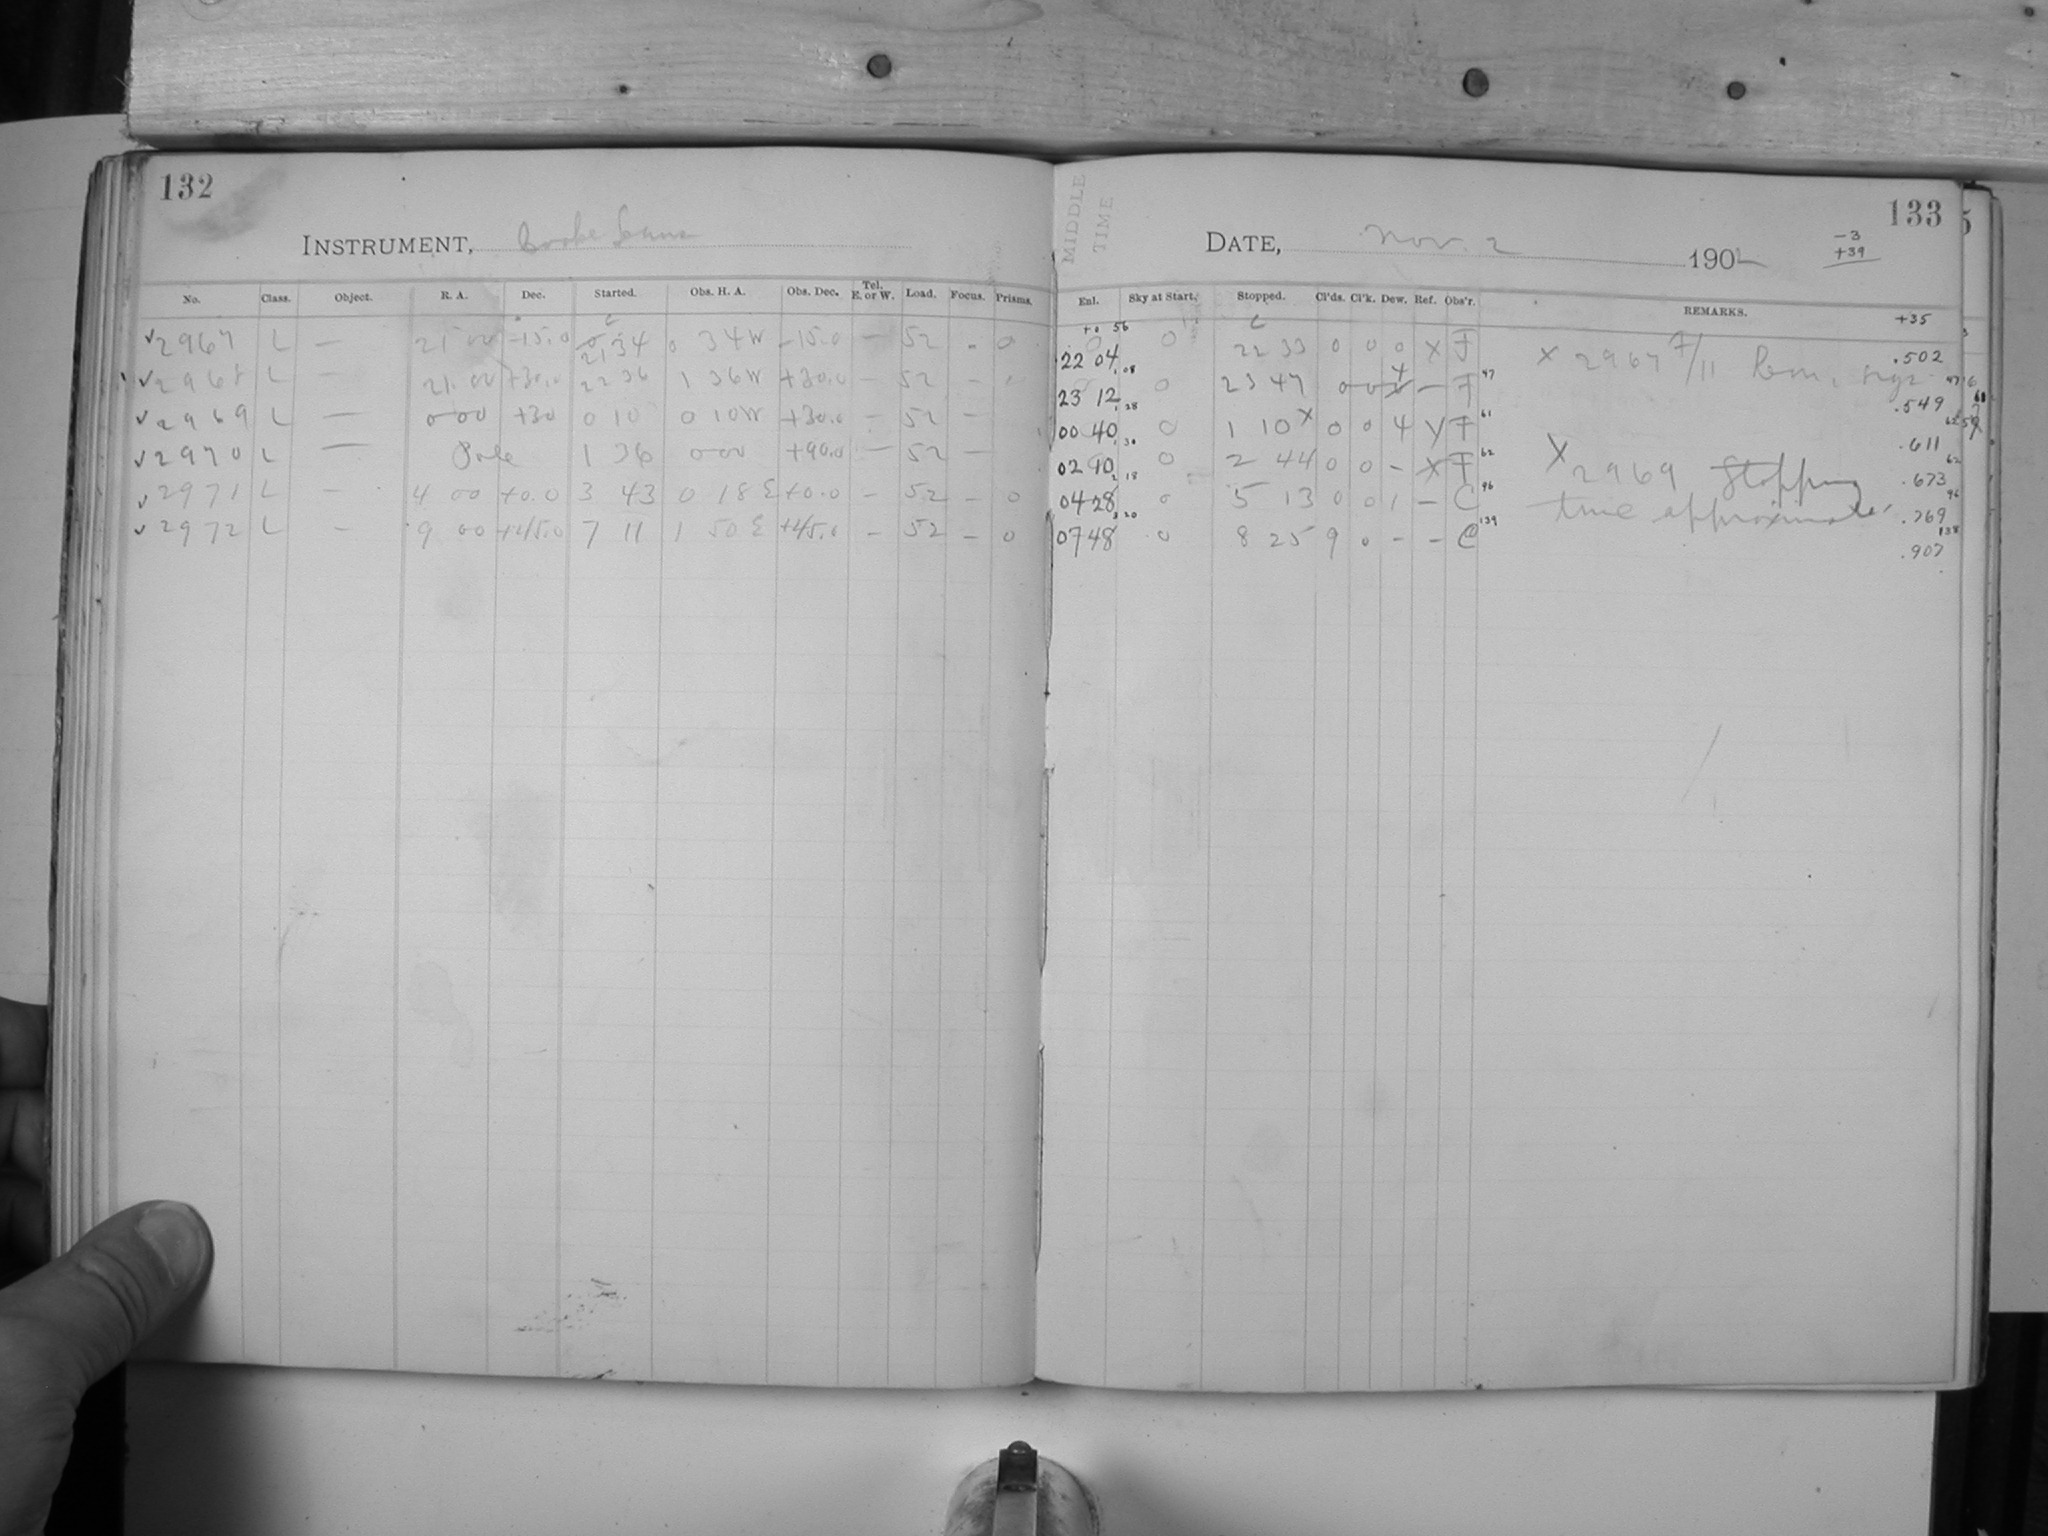 132
INSTRUMENT, Cooke Lens
No. Class. Object. R. A. Dec. Started. Obs. H. A. Obs. Dec. Tel. E. or W. Load. Focus. Prisms.
✓2967 L — 21 00 -15.0 21 34 0 34W -15.0 — 52 - 0
✓2968 L — 21 00 +30.0 22 36 1 36W +30.0 — 52 -
✓2969 L — 0 00 +30 0 10 0 10W +30.0 - 52 -
✓2970 L — Pole 1 36 0 00 +90.0 — 52 -
✓2971 L - 4 00 +0.0 3 43 0 18 E +0.0 - 52 - 0
✓2972 L - 9 00 +45.0 7 11 1 50 E +45.0 - 52 - 0
MIDDLE
TIME
133
DATE, Nov. 2 1902
-3
+39
Enl. Sky at Start. Stopped. Cl'ds. Cl'k. Dew. Ref. Obs'r. REMARKS.
+35
+0 56
22 04 0 22 33 0 0 0 X F X 2967 .502
1 08
23 12 0 23 47 0 0 4 — F 47 .549
1 28
00 40 0 1 10 X 0 0 4 Y F 61 .611
1 30
02 10 0 2 44 0 0 - X F 62 X 2969 Stopping .673
2 18
04 28 0 5 13 0 0 1 - C 96 time approximate. .769
3 20
07 48 0 8 25 9 0 - - C 139 .907